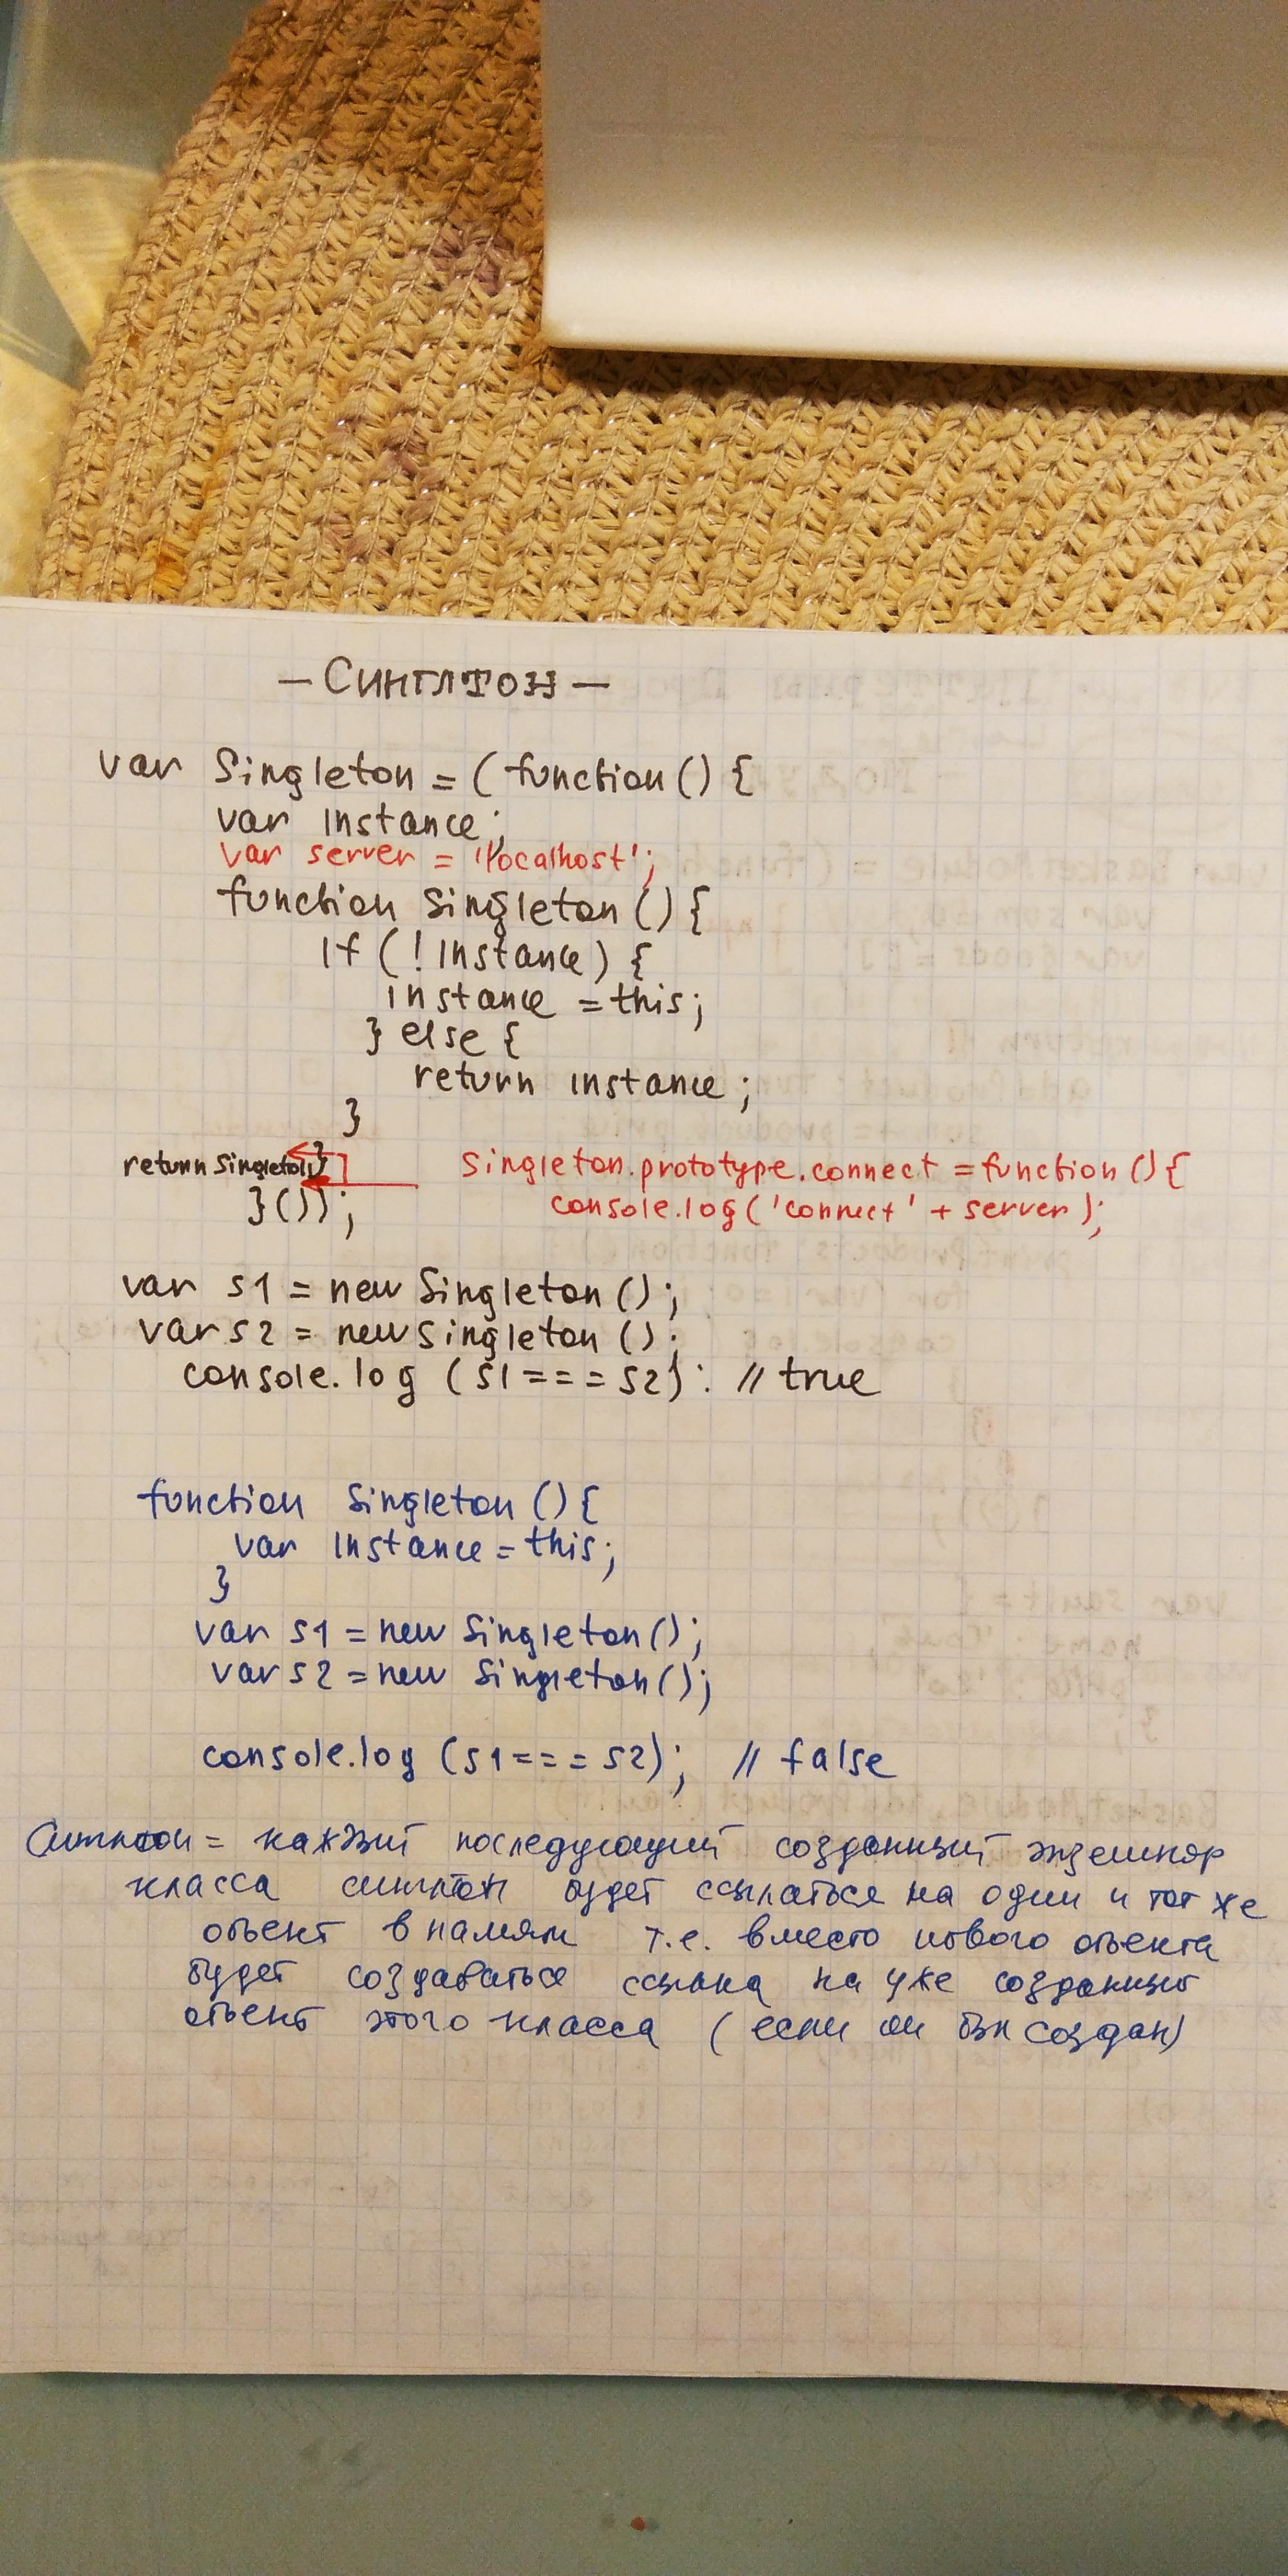 — Синглтон —
var Singleton = (function() {
var instance;
var server = 'localhost';
function Singleton() {
if (! instance) {
instance = this;
} else {
return instance;
}
}
return Singleton;
Singleton.prototype.connect = function() {
console.log('connect' + server);
}());
var s1 = new Singleton();
var s2 = new Singleton();
console.log (s1===s2); // true
function Singleton() {
var instance = this;
}
var s1 = new Singleton();
var s2 = new Singleton();
console.log (s1===s2); // false
Синглтон = каждый последующий созданный экземпляр
класса синглтон будет ссылаться на один и тот же
объект в памяти т.е. вместо нового объекта
будет создаваться ссылка на уже созданный
объект этого класса (если он был создан)